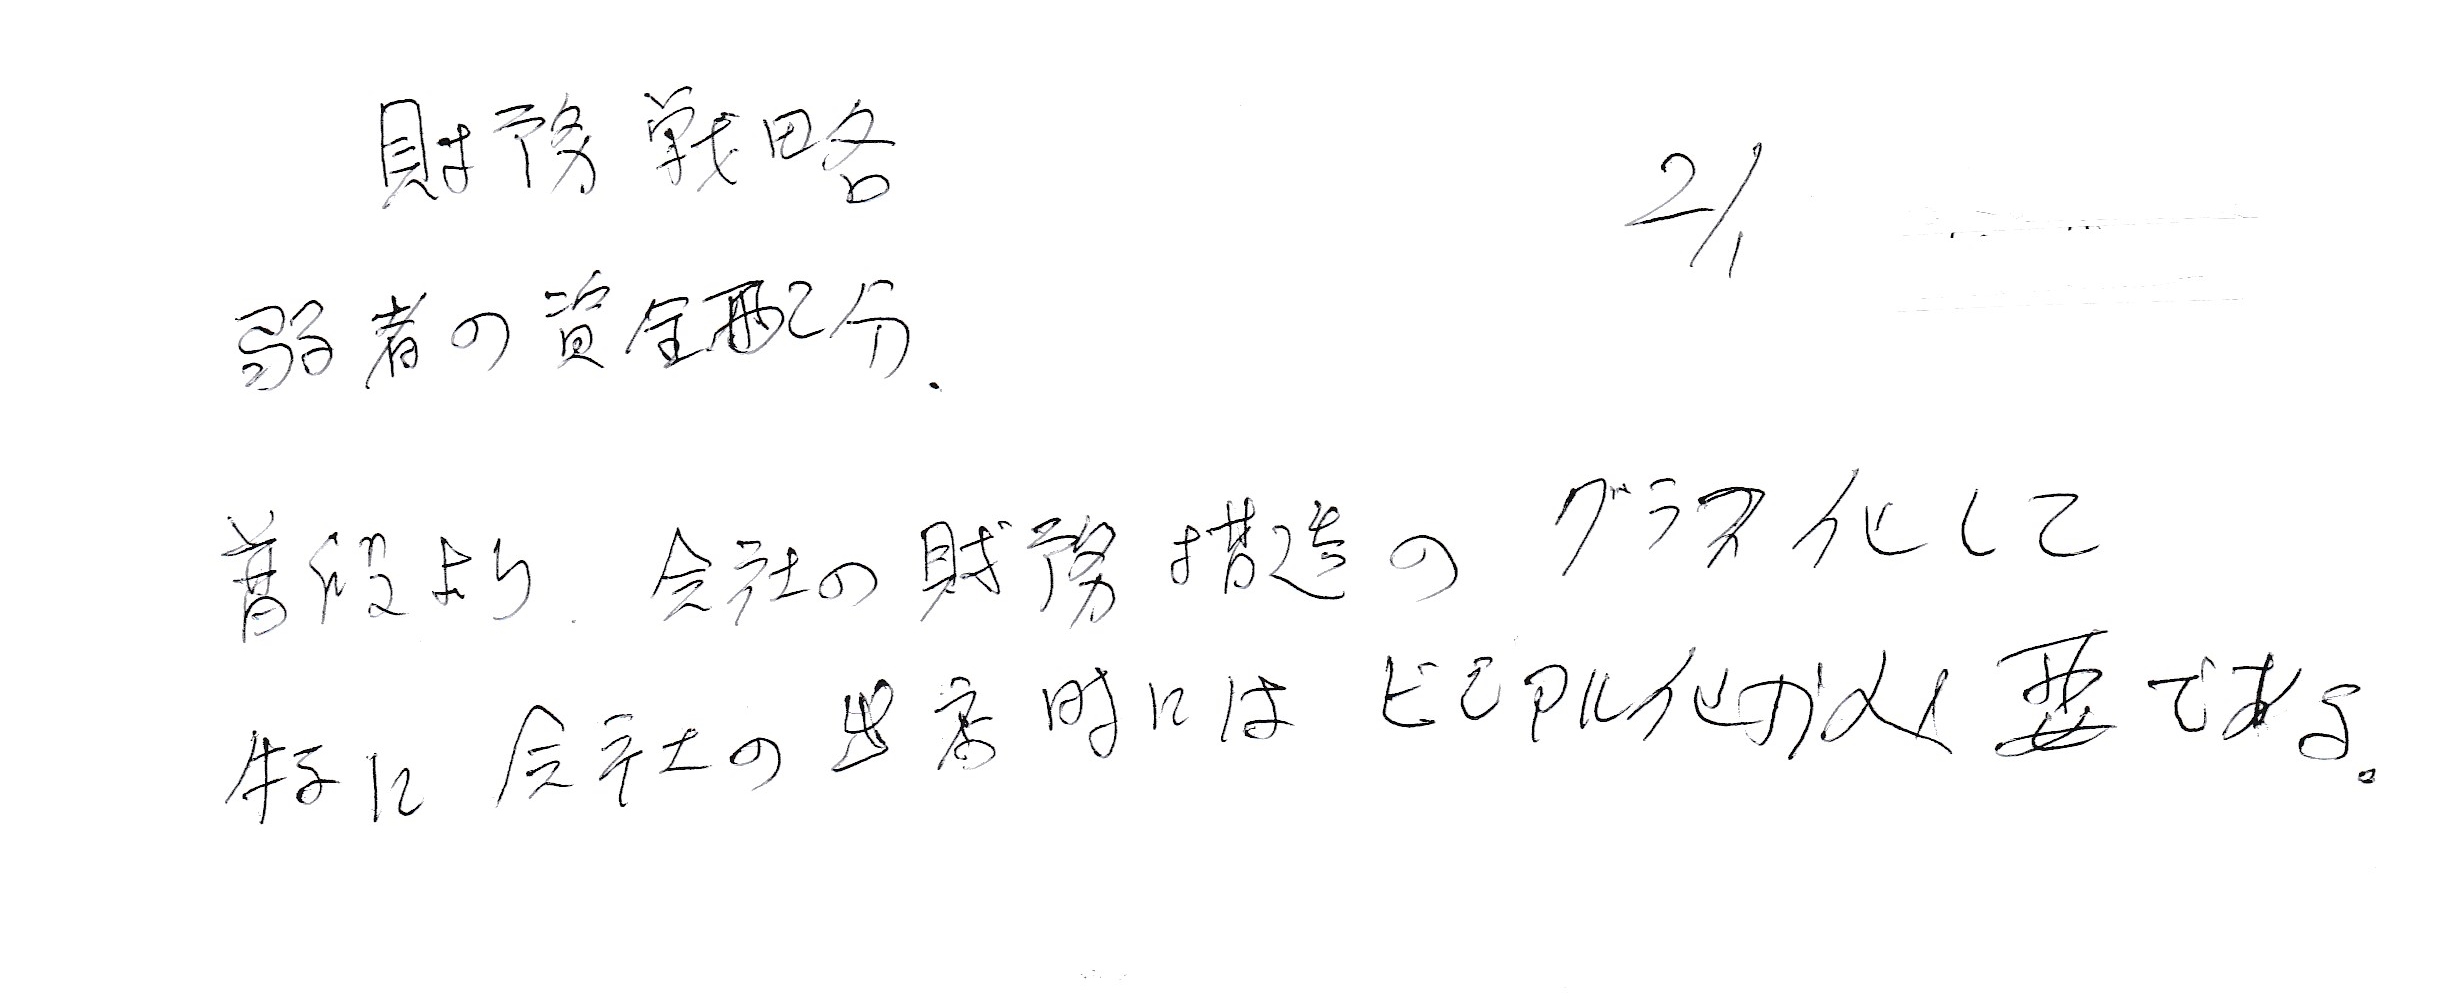 財務戦略
2/1
弱者の資金配分.
普段より.会社の財務構造のグラフ化して
特に会社の出店時にはビジアル化が必要である。